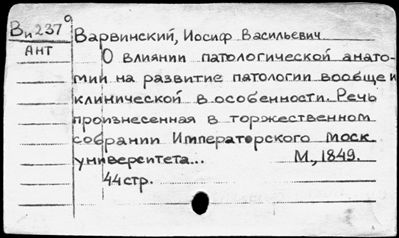 Ви 237⁹
АНТ
Варвинский, Иосиф Васильевич
О влиянии патологической анато-
мии на развитие патологии вообще и
клинической в особенности. Речь
произнесенная в торжественном
собрании Императорского Моск.
университета... М., 1849.
44 стр.